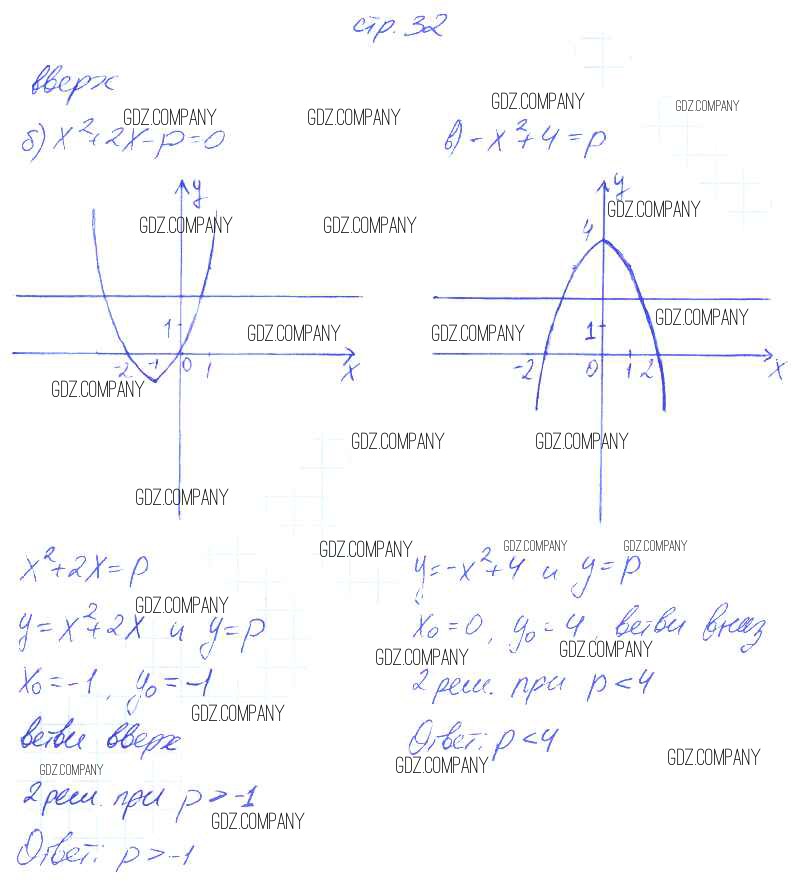 стр. 32
вверх
GDZ.COMPANY GDZ.COMPANY GDZ.COMPANY GDZ.COMPANY
б) x²+2x-p=0
в) -x²+4=p
y
GDZ.COMPANY GDZ.COMPANY
1
GDZ.COMPANY
-2 -1 0 1 x
GDZ.COMPANY
y
GDZ.COMPANY
4
GDZ.COMPANY
1
GDZ.COMPANY
-2 0 1 2 x
GDZ.COMPANY GDZ.COMPANY
GDZ.COMPANY
x²+2x=p
GDZ.COMPANY
y=x²+2x и y=p
x₀=-1, y₀=-1
GDZ.COMPANY
ветви вверх
GDZ.COMPANY
2 реш. при p>-1
GDZ.COMPANY
Ответ: p>-1
GDZ.COMPANY GDZ.COMPANY GDZ.COMPANY
y=-x²+4 и y=p
x₀=0, y₀=4, ветви вниз
GDZ.COMPANY GDZ.COMPANY
2 реш. при p<4
Ответ: p<4
GDZ.COMPANY GDZ.COMPANY